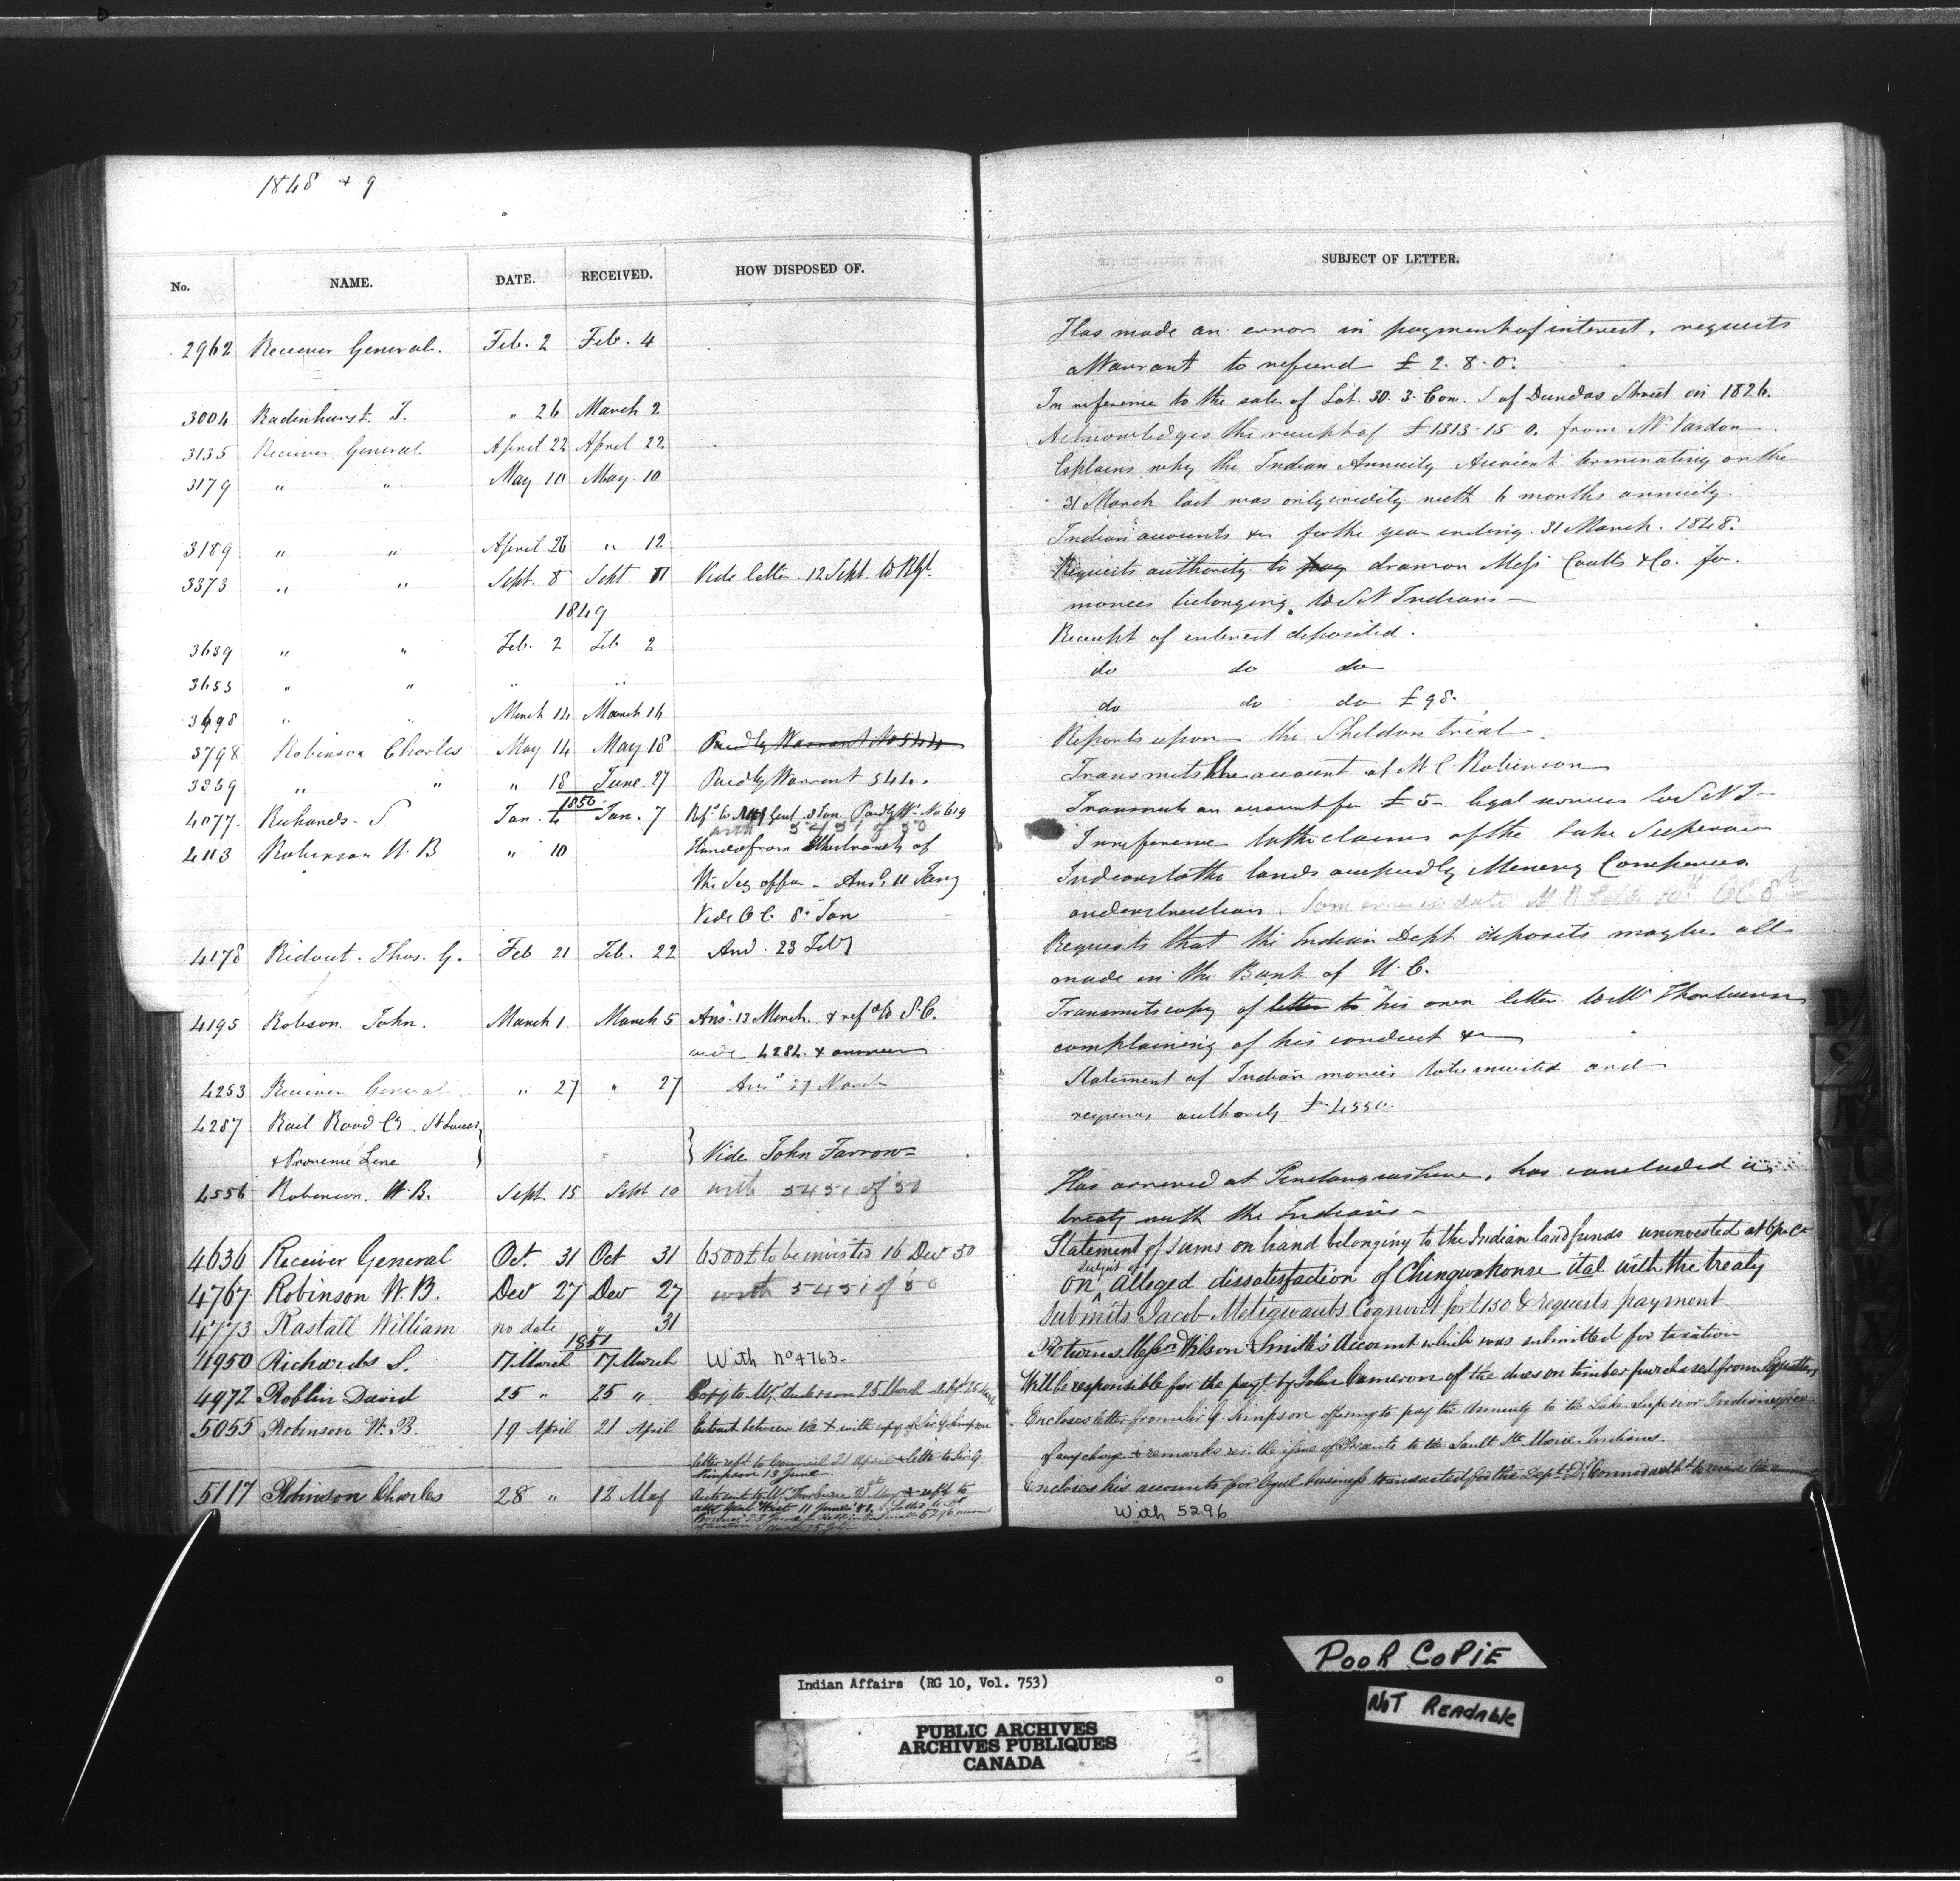 1848 & 9
No. NAME. DATE. RECEIVED. HOW DISPOSED OF. SUBJECT OF LETTER.
2962 Receiver General. Feb. 2 Feb. 4 Has made an error in payment of interest, requests
a Warrant to refund £ 2. 8. 0.
3004 Radenhurst T. " 26 March 2 In reference to the sale of Lot. 30. 3. Con. S of Dundas Street in 1826.
3135 Receiver General April 22 April 22 Acknowledges the receipt of £1313-15-0. from Mr Vardon.
3179 " " May 10 May 10 Explains why the Indian Annuity Account terminating on the
31 March last was only credity with 6 months annuity.
3189 " " April 26 " 12 Indian accounts &c for the year ending 31 March. 1848.
3373 " " Sept. 8 Sept 11 Vide letter. 12 Sept. to R.G. Requests authority to pay draw on Mess Coutts & Co. for
monies belonging to S N Indians
1849
3639 " " Feb. 2 Feb 2 Receipt of interest deposited.
3653 " " " " do do do
3698 " " March 14 March 16 do do do £98.
3798 Robinson Charles May 14 May 18 Paid by Warrant No 544 Reports upon the Sheldon trial
3869 " " " 18 June 27 Paid by Warrant 544. Transmits the account of Mr C Robinson
1850
4077 Richards S Jan. 4 Jan. 7 Paid by Wt No 619 Transmits an account for £5 legal services to S N I
with 5451 of 50
4113 Robinson W. B " 10 Handed from the branch of In reference to the claims of the Lake Superior
the Sec office - Ansd 11 Jany Indians to the lands occupied by Mining Companies
Vide C C. 8 Jan and instructions.
4178 Ridout. Thos. G. Feb 21 Feb. 22 And. 23 Feby Requests that the Indian Dept deposits may be all
made in the Bank of U. C.
4195 Robson John. March 1 March 5 Ans. 13 March. & refd to S. C. Transmits copy of letter to his own letter to Mr Thorburn
vide 4284 & answer complaining of his conduct &c
4253 Receiver General " 27 " 27 Ansd 29 March Statement of Indian monies to be invested and
requires authority £4550.
4287 Rail Road Co. St Lawrence
& Province Line Vide John Farrow
4556 Robinson W. B. Sept. 15 Sept 10 with 5451 of 50 Has arrived at Penetanguishene, has concluded a
treaty with the Indians -
4636 Receiver General Oct. 31 Oct 31 6500£ to be invested 16 Dec 50 Statement of sums on hand belonging to the Indian land funds uninvested at 6 pr ct
4767 Robinson W. B. Dec 27 Dec 27 with 5451 of 50 On subject of alleged dissatisfaction of Chingwakonse et al with the treaty
4773 Rastall William no date " 31 Submits Jacob Metigwaubs Cognovit for £150 & requests payment
1851
4950 Richards S. 17 March 17 March With No 4763 - Returns Messrs Wilson & Smith's Account which was submitted for taxation
4972 Roblin David 25 " 25 " Copy to Wm Anderson 25 March Will be responsible for the payt. by John Cameron of the dues on timber purchased from Squatters
5055 Robinson W. B. 19 April 21 April Encloses letter from Sir G. Simpson offering to pay the Annuity to the Lake Superior Indians free
letter refd to Council 21 April & letter to Sir G. of any charge & remarks res. the issue of Presents to the Sault Ste Marie Indians.
Simpson 13 June
5117 Robinson Charles 28 " 12 May Encloses his accounts for legal business transacted for the Dept.
With 5296
Indian Affairs (RG 10, Vol. 753)
PUBLIC ARCHIVES
ARCHIVES PUBLIQUES
CANADA
POOR COPIE
NOT READABLE